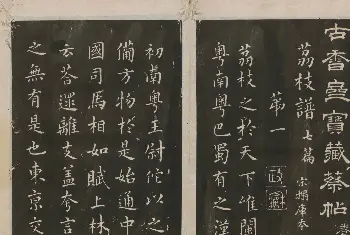 古香齋寶藏蔡帖
荔枝譜七篇 宋搨庫本
第一
荔枝之於天下唯閩
粵南粵巴蜀有之漢
初南粵王尉佗以之
備方物於是始通中
國司馬相如賦上林
云荅遝離支蓋夸言
之無有是也東京交